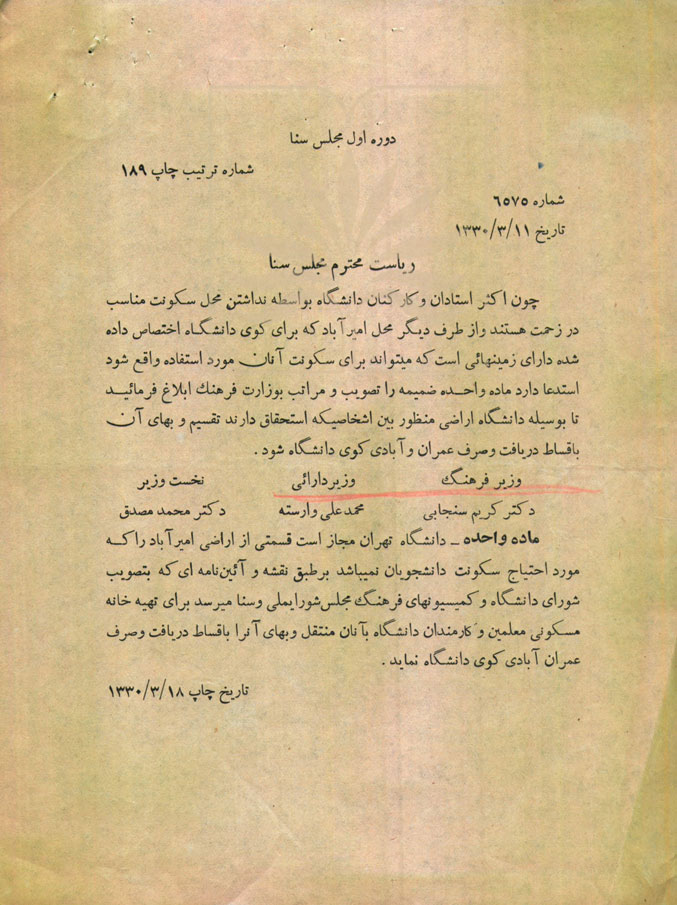 دوره اول مجلس سنا
شماره ترتیب چاپ ۱۸۹
شماره ۶۵۷۵
تاریخ ۱۳۳۰/۳/۱۱
ریاست محترم مجلس سنا
چون اکثر استادان و کارکنان دانشگاه بواسطه نداشتن محل سکونت مناسب
در زحمت هستند واز طرف دیگر محل امیرآباد که برای کوی دانشگاه اختصاص داده
شده دارای زمینهائی است که میتواند برای سکونت آنان مورد استفاده واقع شود
استدعا دارد ماده واحده ضمیمه را تصویب و مراتب بوزارت فرهنگ ابلاغ فرمائید
تا بوسیله دانشگاه اراضی منظور بین اشخاصیکه استحقاق دارند تقسیم و بهای آن
باقساط دریافت وصرف عمران و آبادی کوی دانشگاه شود .
وزیر فرهنگ وزیردارائی نخست وزیر
دکتر کریم سنجابی محمدعلی وارسته دکتر محمد مصدق
ماده واحده ـ دانشگاه تهران مجاز است قسمتی از اراضی امیرآباد راکه
مورد احتیاج سکونت دانشجویان نمیباشد برطبق نقشه و آئین‌نامه ای که بتصویب
شورای دانشگاه و کمیسیونهای فرهنگ مجلس‌شورایملی وسنا میرسد برای تهیه خانه
مسکونی معلمین و کارمندان دانشگاه بآنان منتقل وبهای آنرا باقساط دریافت وصرف
عمران آبادی کوی دانشگاه نماید .
تاریخ چاپ ۱۳۳۰/۳/۱۸